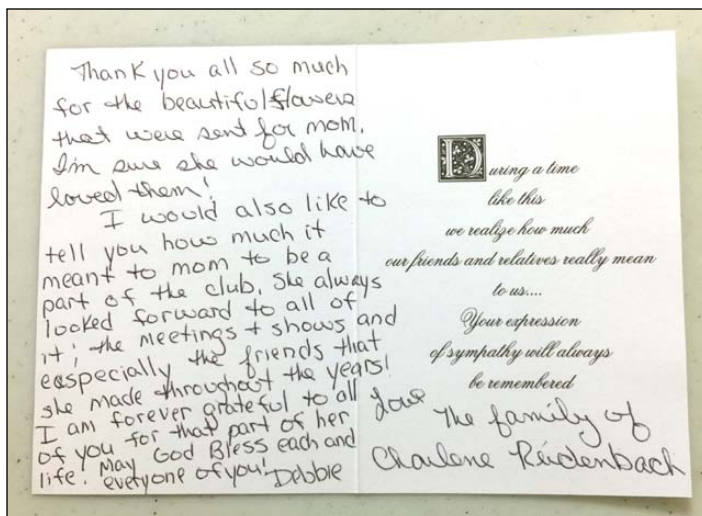 Thank you all so much
for the beautiful flowers
that were sent for mom.
I'm sure she would have
loved them!
I would also like to
tell you how much it
meant to mom to be a
part of the club. She always
looked forward to all of
it; the meetings + shows and
easpecially the friends that
she made throughout the years!
I am forever grateful to all
of you for that part of her
life. May God Bless each and
everyone of you! Debbie
During a time
like this
we realize how much
our friends and relatives really mean
to us....
Your expression
of sympathy will always
be remembered
Love
The family of
Charlene Reidenbach